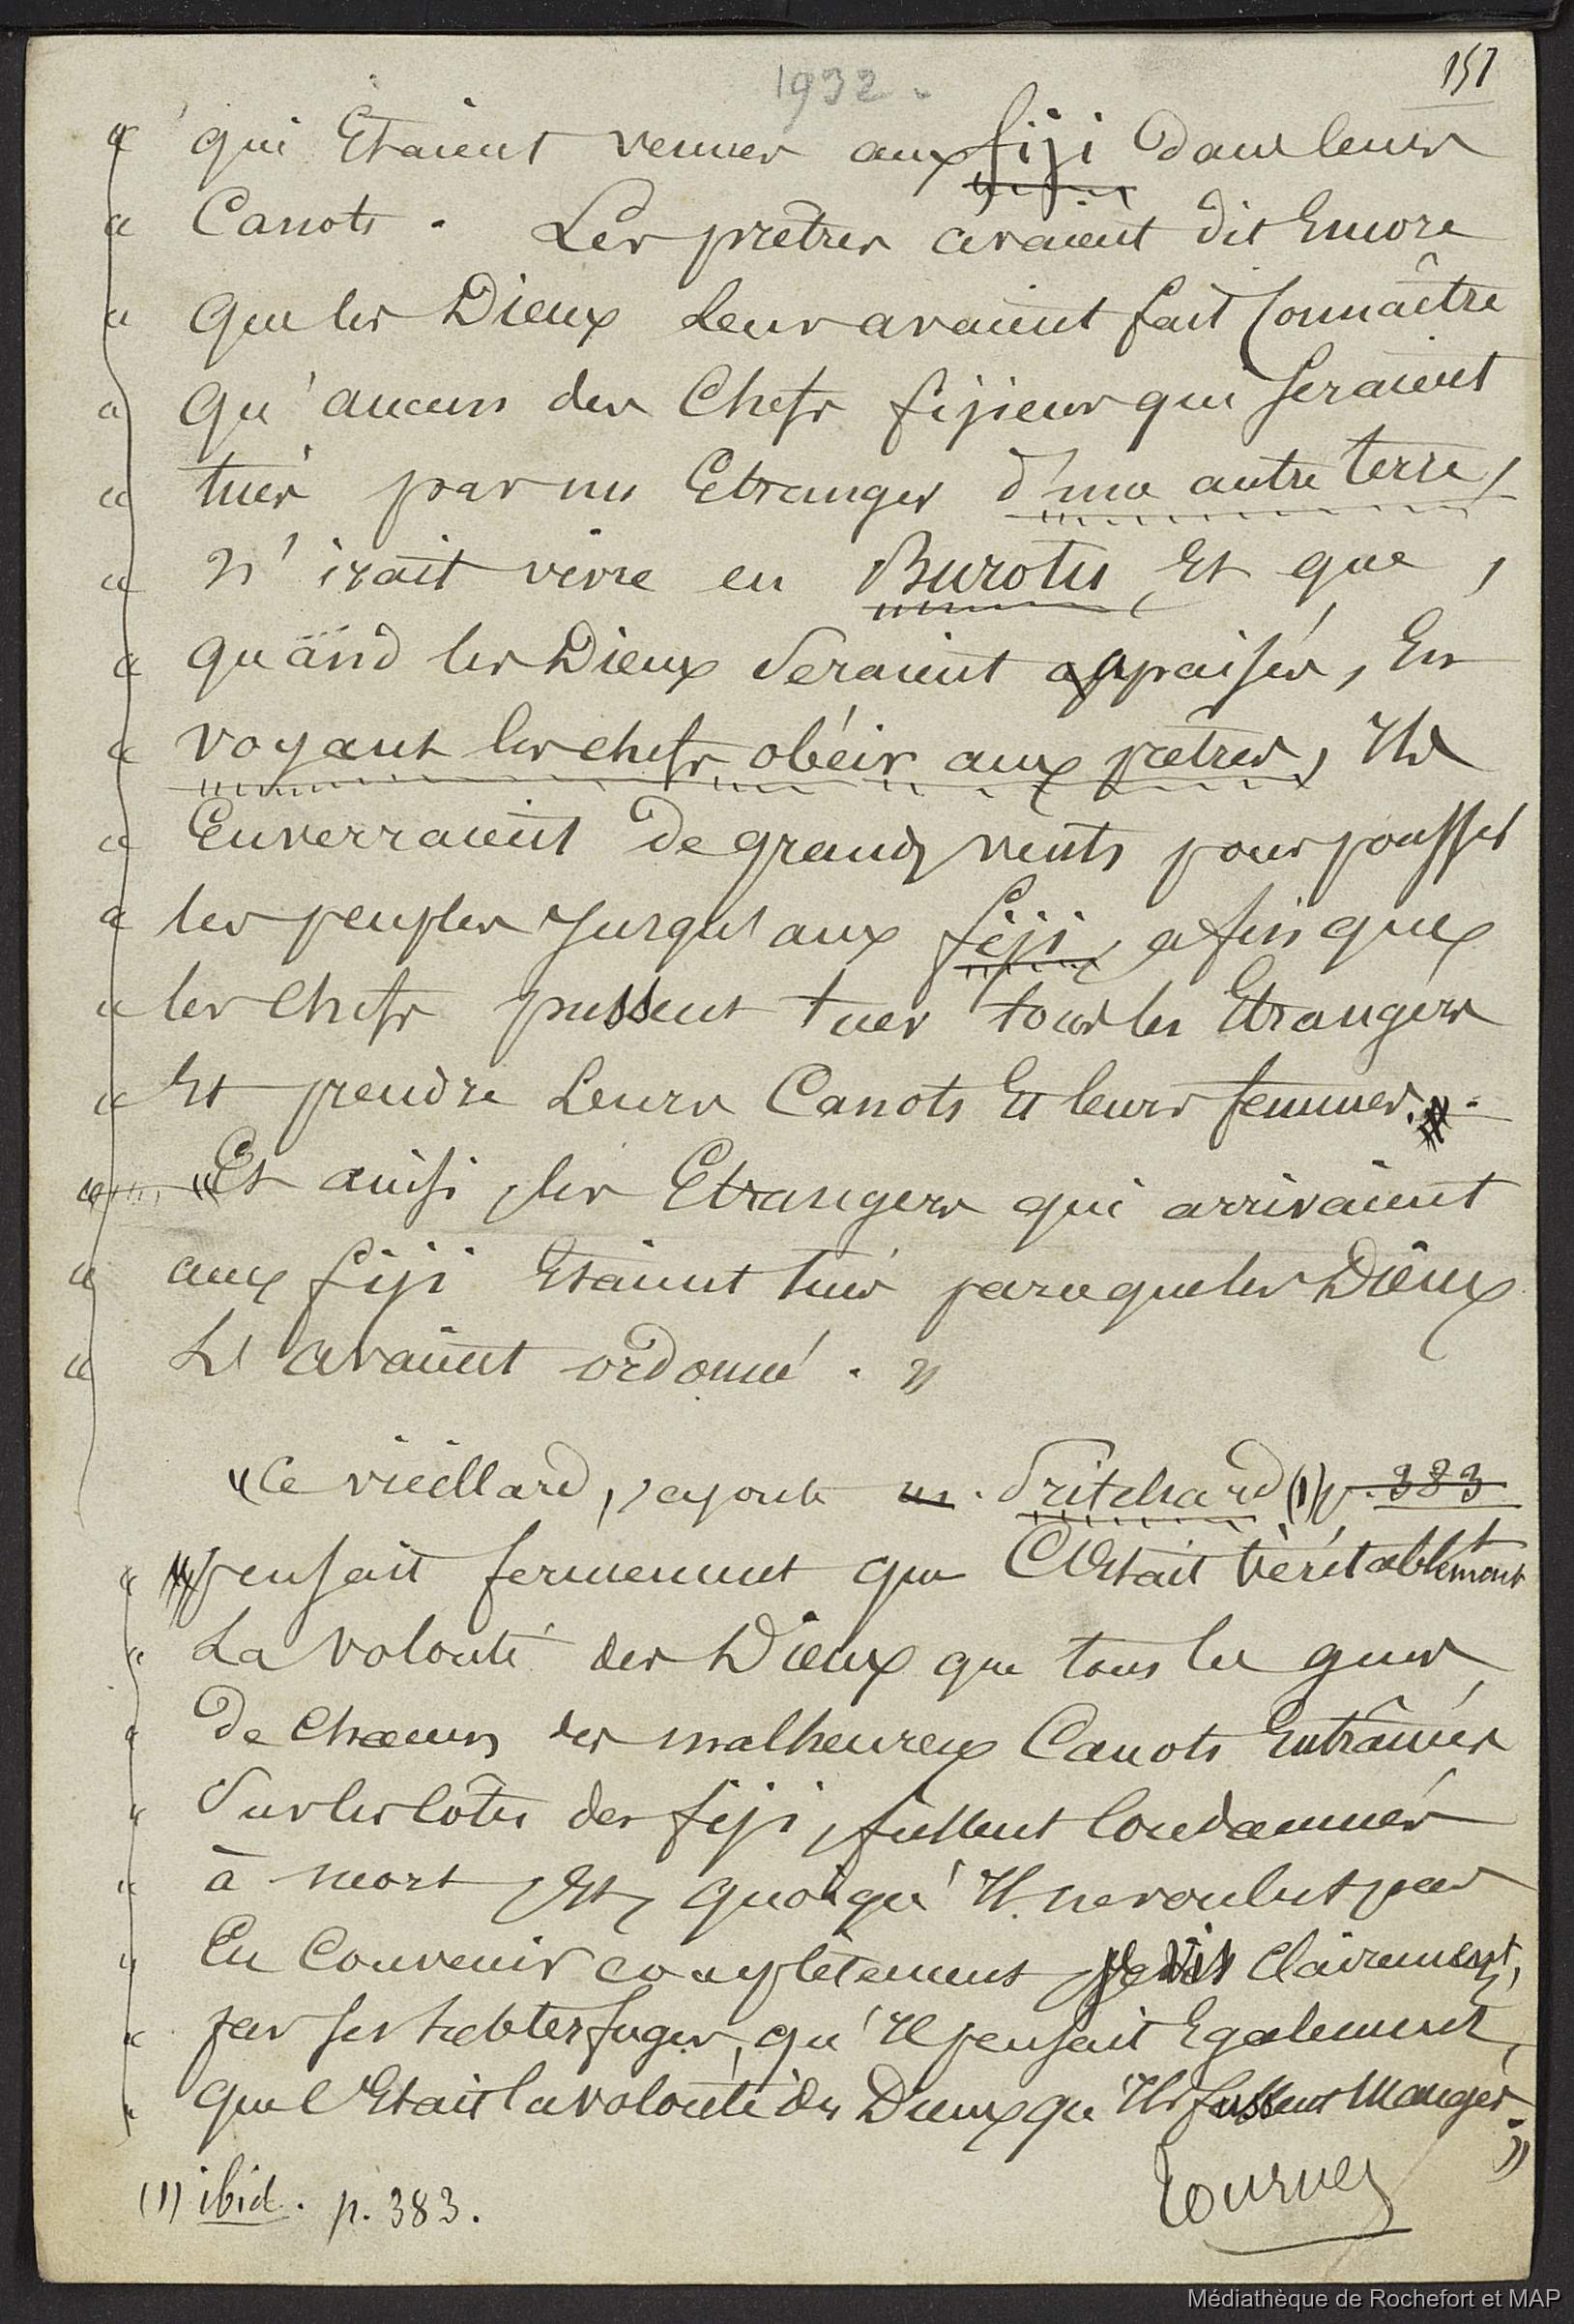 1932.
151
« qui Etaient venues aux fiji dans leurs
« Canots. Les prêtres avaient dit Encore
« que les Dieux leur avaient fait Connaître
« qu'aucun des Chefs fijiens qui Seraient
« tués par un Etranger d'une autre terre,
« n'irait vivre en Burotu, Et que,
« quand les Dieux Seraient appaisés, En
« voyant les chefs obéir aux prêtres, Ils
« Enverraient de grands vents pour pousser
« les peuples Jusqu'aux fiji, afin que
« les Chefs pussent tuer tous les Etrangers
« Et prendre Leurs Canots Et leurs femmes.
« «Et ainsi, les Etrangers qui arrivaient
« aux fiji Etaient tués parce que les Dieux
« L'avaient ordonné. »
« Ce vieillard, ajoute m. Pritchard (1) p. 383
« pensait fermement que C'était véritablement
« La volonté des Dieux que tous les gens
« De chacun des malheureux Canots Entraînés
« Sur les Côtes des fiji, fussent Condamnés
« à mort, Et, quoiqu'Il ne voulut pas
« En Convenir complètement, Je vis Clairement,
« par ses subterfuges, qu'Il pensait Egalement,
« que C'Etait la volonté des Dieux qu'Ils fussent Mangés. »
(1) ibid. p. 383.
Tournez
Médiathèque de Rochefort et MAP